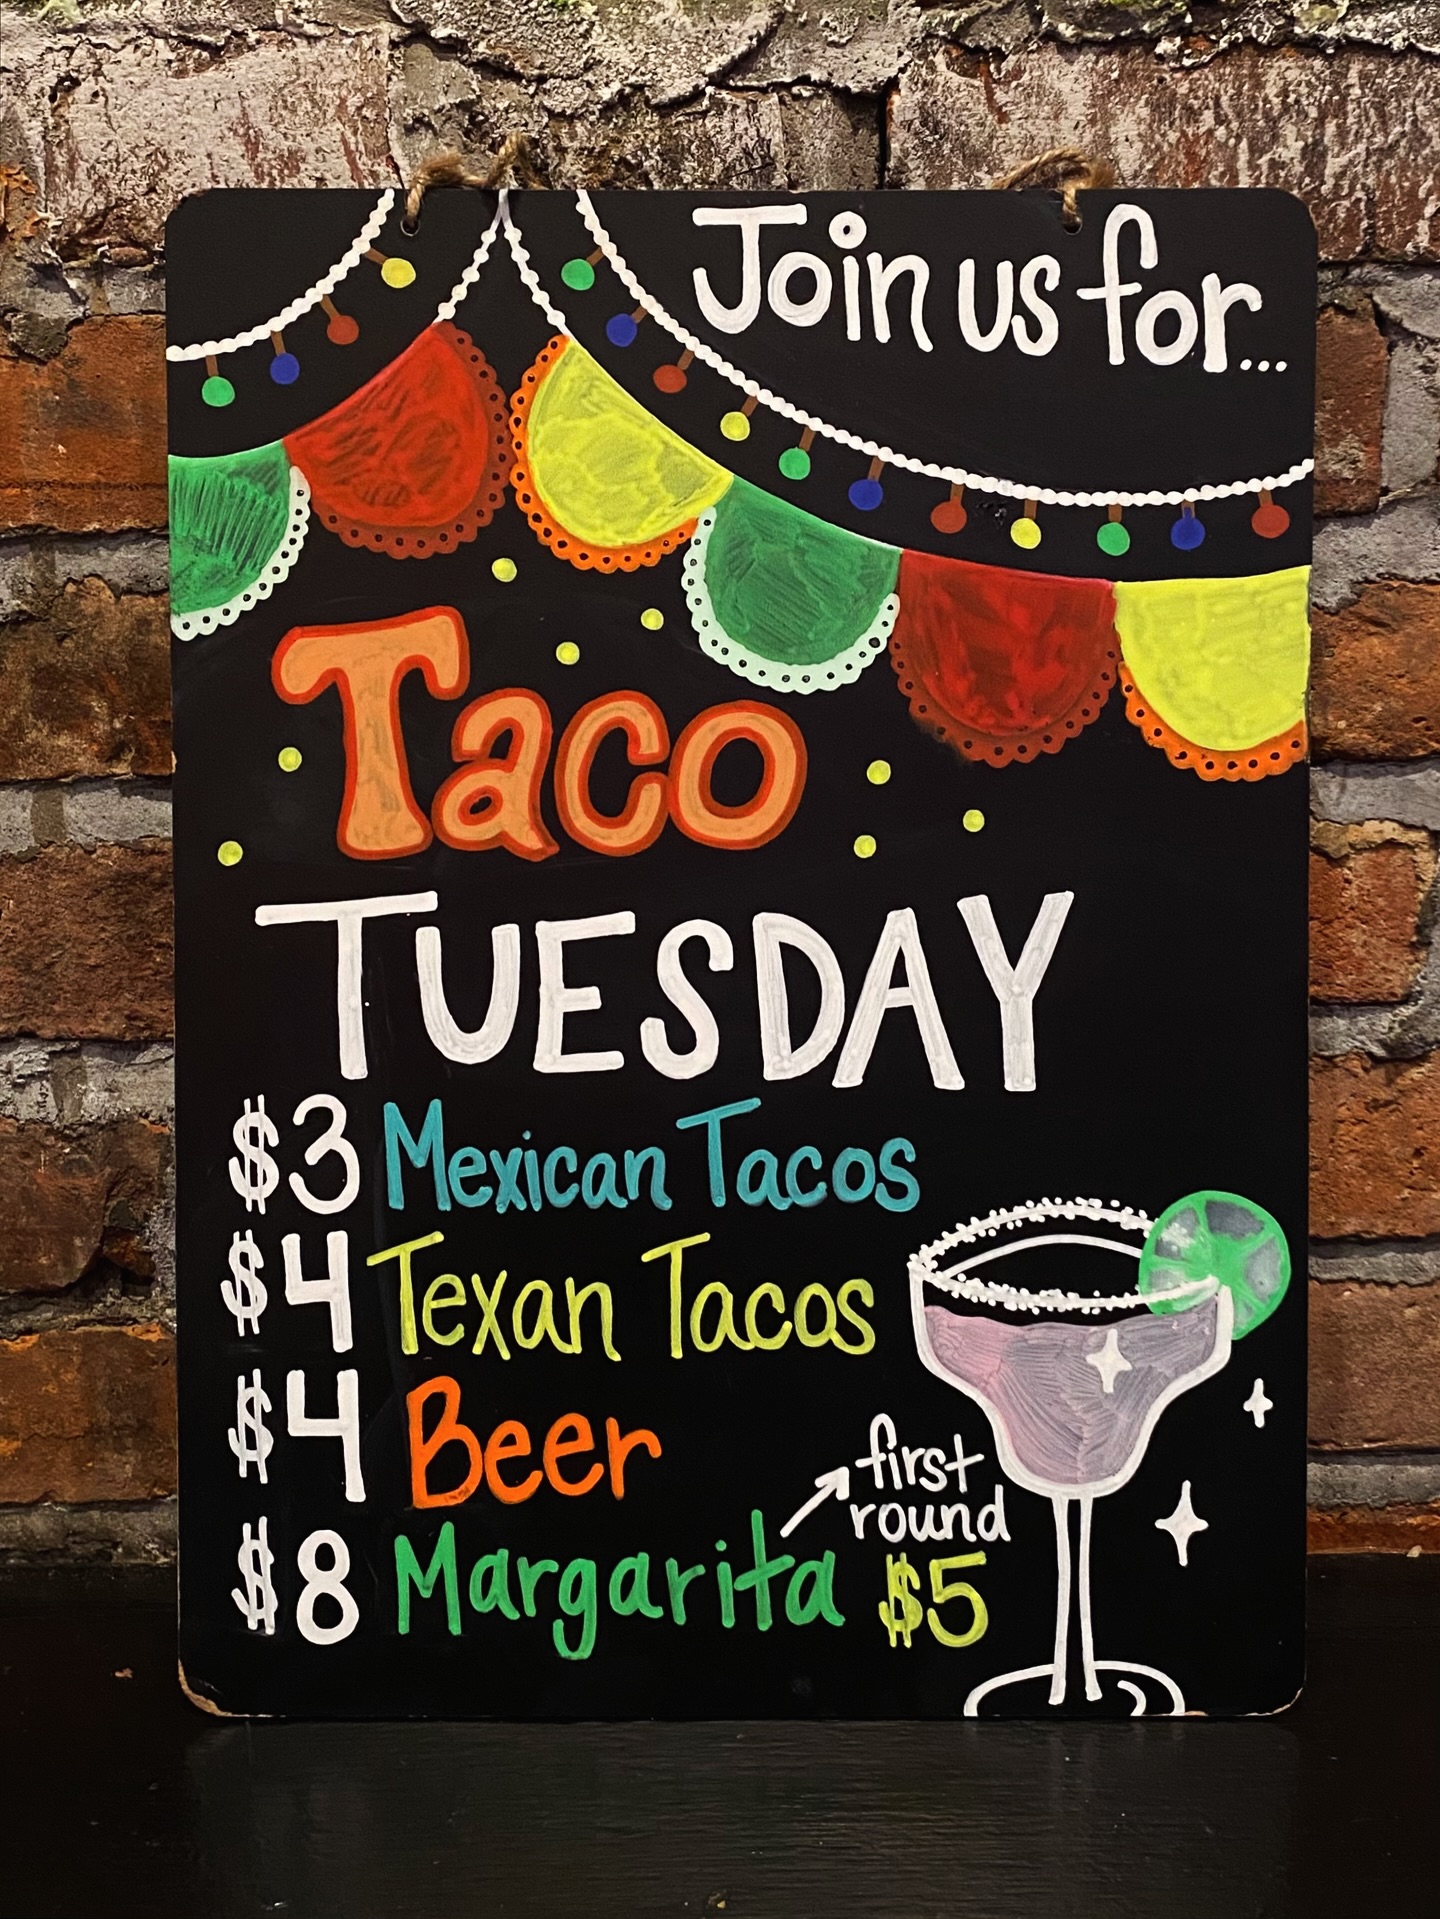 Join us for...
Taco
TUESDAY
$3 Mexican Tacos
$4 Texan Tacos
$4 Beer
$8 Margarita
first
round
$5